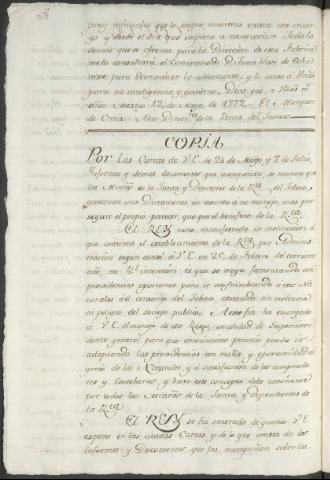 pesos annuales que le asigno, mientras exista este encar-
go y desde el dia que empiese a exercerlo. Todo lo
demas que se ofresca para la Direccion de esta Fabrica
me lo consultará el Comisionado Dn. Juan José de Eche-
veste, para determinar lo conveniente, y lo aviso á Vmds
para su inteligencia y govierno. Dios gue. a Vmds ms.
años. Mexico 12 de Mayo de 1772. El Marques
de Croix. A los Directores de la Renta del Tavaco.
COPIA
Por las Cartas de V.E. de 24 de Mayo y 2 de Julio,
Informes y demas documentos que acompañan, se reconoce que
los Ministros de la Junta y Directores de la Rta. del Tabaco,
sus Dictamenes, en quanto a su manejo, mas por
seguir el propio parecer, que por el beneficio de la Rta.
El REY tiene manifestada su inclinacion á
que continue el establecimiento de la Rta. por Adminis-
tracion segun avisé á V.E. en 25 de Febrero del corriente
año, su Rl. intencion es que se vaya fomentando con
providencias oportunas para ir acostumbrando á esos Na-
turales al consumo del Tabaco, estancado sin violencia
ni peligro del sosiego publico. A este fin ha encargado
á V.E. el manejo de este Ramo, en calidad de Superinten-
dente general para que conocimiento practico pueda ir
adaptando las providencias con maña y oportunidad al
genio de los Naturales, y á satisfaccion de los comprado-
res y Cosecheros, y baxo este concepto debe continuarse
por todos los Ministros de la Junta, y dependientes de
la Rta.
El REY se ha enterado de quanto V.E.
expone en las citadas Cartas, y de lo que consta de los
Informes y Documentos que las acompañan sobre las